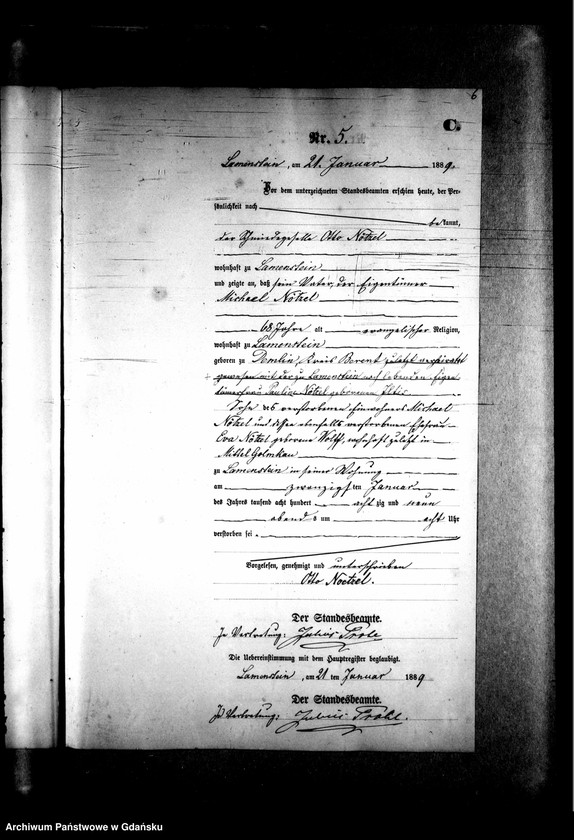 6
C.
Nr. 5.
Lamenstein, am 21. Januar 1889.
Vor dem unterzeichneten Standesbeamten erschien heute, der Per-
sönlichkeit nach
bekannt,
der Schmiedegeselle Otto Nötzel
wohnhaft zu Lamenstein
und zeigte an, daß sein Vater, der Eigentümer
Michael Nötzel
68 Jahre alt evangelischer Religion,
wohnhaft zu Lamenstein
geboren zu Demlin, Kreis Berent zuletzt verheirathet
gewesen mit der zu Lamenstein noch lebenden Eigen
tümerfrau Pauline Nötzel geborenen
Sohn des verstorbenen Einwohners Michael
Nötzel und dessen ebenfalls verstorbenen Ehefrau
Eva Nötzel geborene wohnhaft zuletzt in
Mittel Golmkau
zu Lamenstein in seiner Wohnung
am zwanzigsten Januar
des Jahres tausend acht hundert achtzig und neun
abends um acht Uhr
verstorben sei
Vorgelesen, genehmigt und unterschrieben
Otto Noetzel.
Der Standesbeamte.
In Vertretung: Julius
Die Uebereinstimmung mit dem Hauptregister beglaubigt.
Lamenstein, am 21 ten Januar 1889
Der Standesbeamte.
In Vertretung: Julius
Archiwum Państwowe w Gdańsku